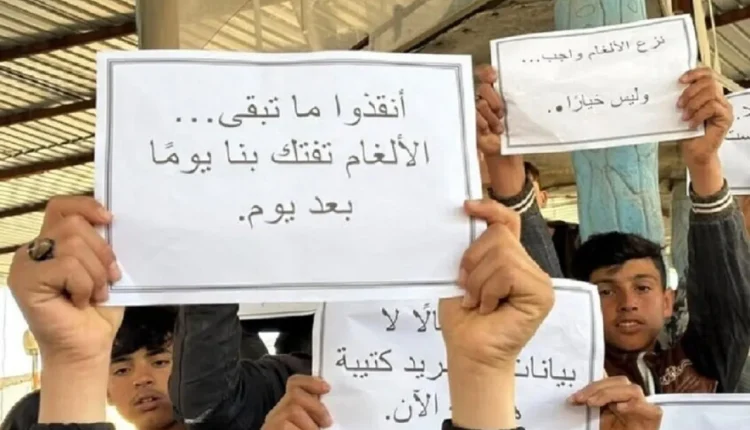 أنقذوا ما تبقى...
الألغام تفتك بنا يومًا
بعد يوم.
نزع الألغام واجب...
وليس خيارًا.
لا
بيانات
كتيبة
الآن.